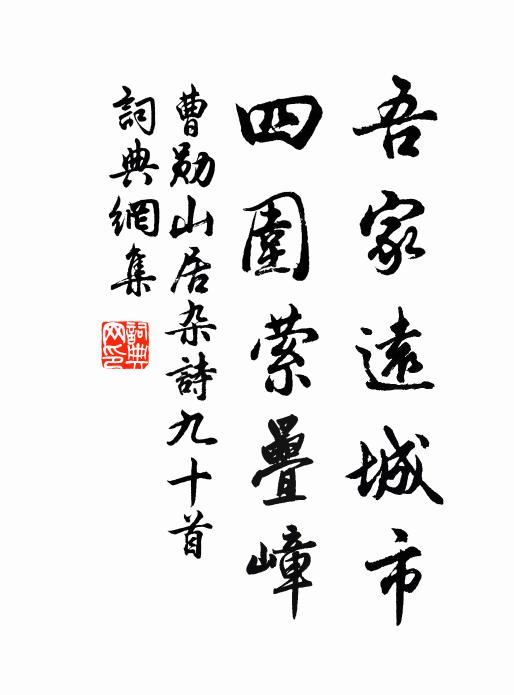 吾家遠城市
四圍縈疊嶂
曹勛山居杂詩九十首
詞典網集
詞典網印